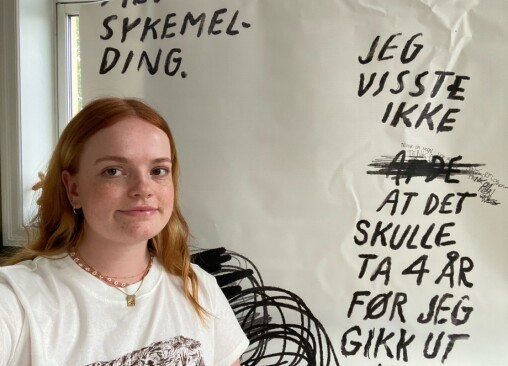 SYKEMEL-
DING.
JEG
VISSTE
IKKE
AT DE
AT DET
SKULLE
TA 4 ÅR
FØR JEG
GIKK UT